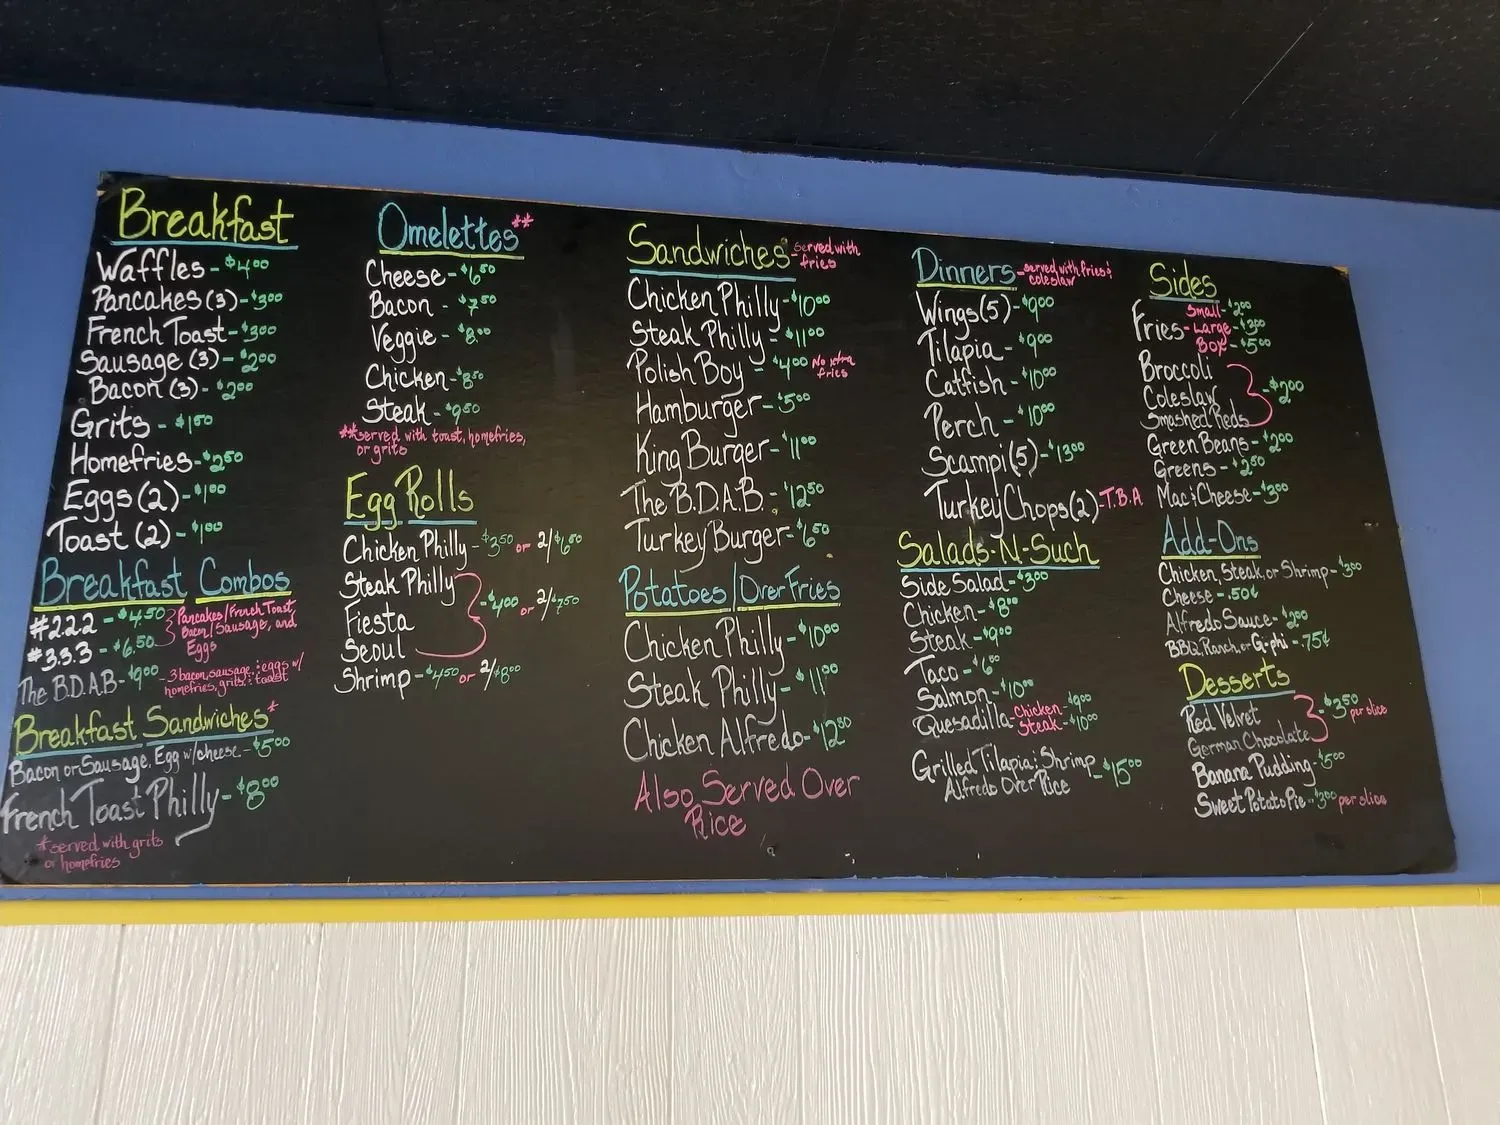 Breakfast
Waffles - $4.00
Pancakes (3) - $3.00
French Toast - $3.00
Sausage (3) - $2.00
Bacon (3) - $2.00
Grits - $1.50
Homefries - $2.50
Eggs (2) - $1.00
Toast (2) - $1.00
Breakfast Combos
#2.2.2 - $4.50
#3.3.3 - $6.50
Pancakes/French Toast,
Bacon/Sausage, and
Eggs
The B.D.A.B - $9.00 - 3 bacon, sausage, : eggs w/
homefries, grits : toast
Breakfast Sandwiches*
Bacon or Sausage, Egg w/cheese - $5.00
French Toast Philly - $8.00
*served with grits
or homefries
Omelettes**
Cheese - $6.50
Bacon - $7.50
Veggie - $8.00
Chicken - $8.50
Steak - $9.50
**served with toast, homefries,
or grits
Egg Rolls
Chicken Philly - $3.50 or 2/$6.50
Steak Philly
Fiesta
Seoul
- $4.00 or 2/$7.50
Shrimp - $4.50 or 2/$8.00
Sandwiches - served with
fries
Chicken Philly - $10.00
Steak Philly - $11.00
Polish Boy - $4.00 No xtra
fries
Hamburger - $5.00
King Burger - $11.00
The B.D.A.B. - $12.50
Turkey Burger - $6.50
Potatoes/Over Fries
Chicken Philly - $10.00
Steak Philly - $11.00
Chicken Alfredo - $12.50
Also Served Over
Rice
Dinners - served with fries &
coleslaw
Wings (5) - $9.00
Tilapia - $9.00
Catfish - $10.00
Perch - $10.00
Scampi (5) - $13.00
Turkey Chops (2) - T.B.A
Salads-N-Such
Side Salad - $3.00
Chicken - $8.00
Steak - $9.00
Taco - $6.00
Salmon - $10.00
Quesadilla - Chicken - $9.00
Steak - $10.00
Grilled Tilapia : Shrimp
Alfredo Over Rice - $15.00
Sides
Fries - Small - $2.00
Large - $3.00
Box - $5.00
Broccoli
Coleslaw
Smashed Reds
- $2.00
Green Beans - $2.00
Greens - $2.50
Mac : Cheese - $3.00
Add-Ons
Chicken, Steak, or Shrimp - $3.00
Cheese - .50¢
Alfredo Sauce - $2.00
BBQ, Ranch, or G-phi - .75¢
Desserts
Red Velvet
German Chocolate
$3.50 per slice
Banana Pudding - $5.00
Sweet Potato Pie - $3.00 per slice